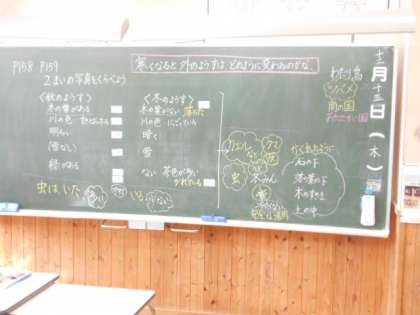 P158 P159
2まいの写真をくらべよう
寒くなると 外のようすは どのように変わるのかな。
十二月十三日(木)
わたり鳥
ツバメ
南の国
あたたかい国
<秋のようす>
木の葉がある
川の色
明るい
(雪なし)
緑がある
虫は、いた
<冬のようす>
木の葉がない 落ちた
川の色 にごっている
暗く
雪
ない 茶色が多い
かれている
いる 少ない
カエル
ない
クマ
虫
冬みん
石の下
落ち葉の下
木のすきま
土の中